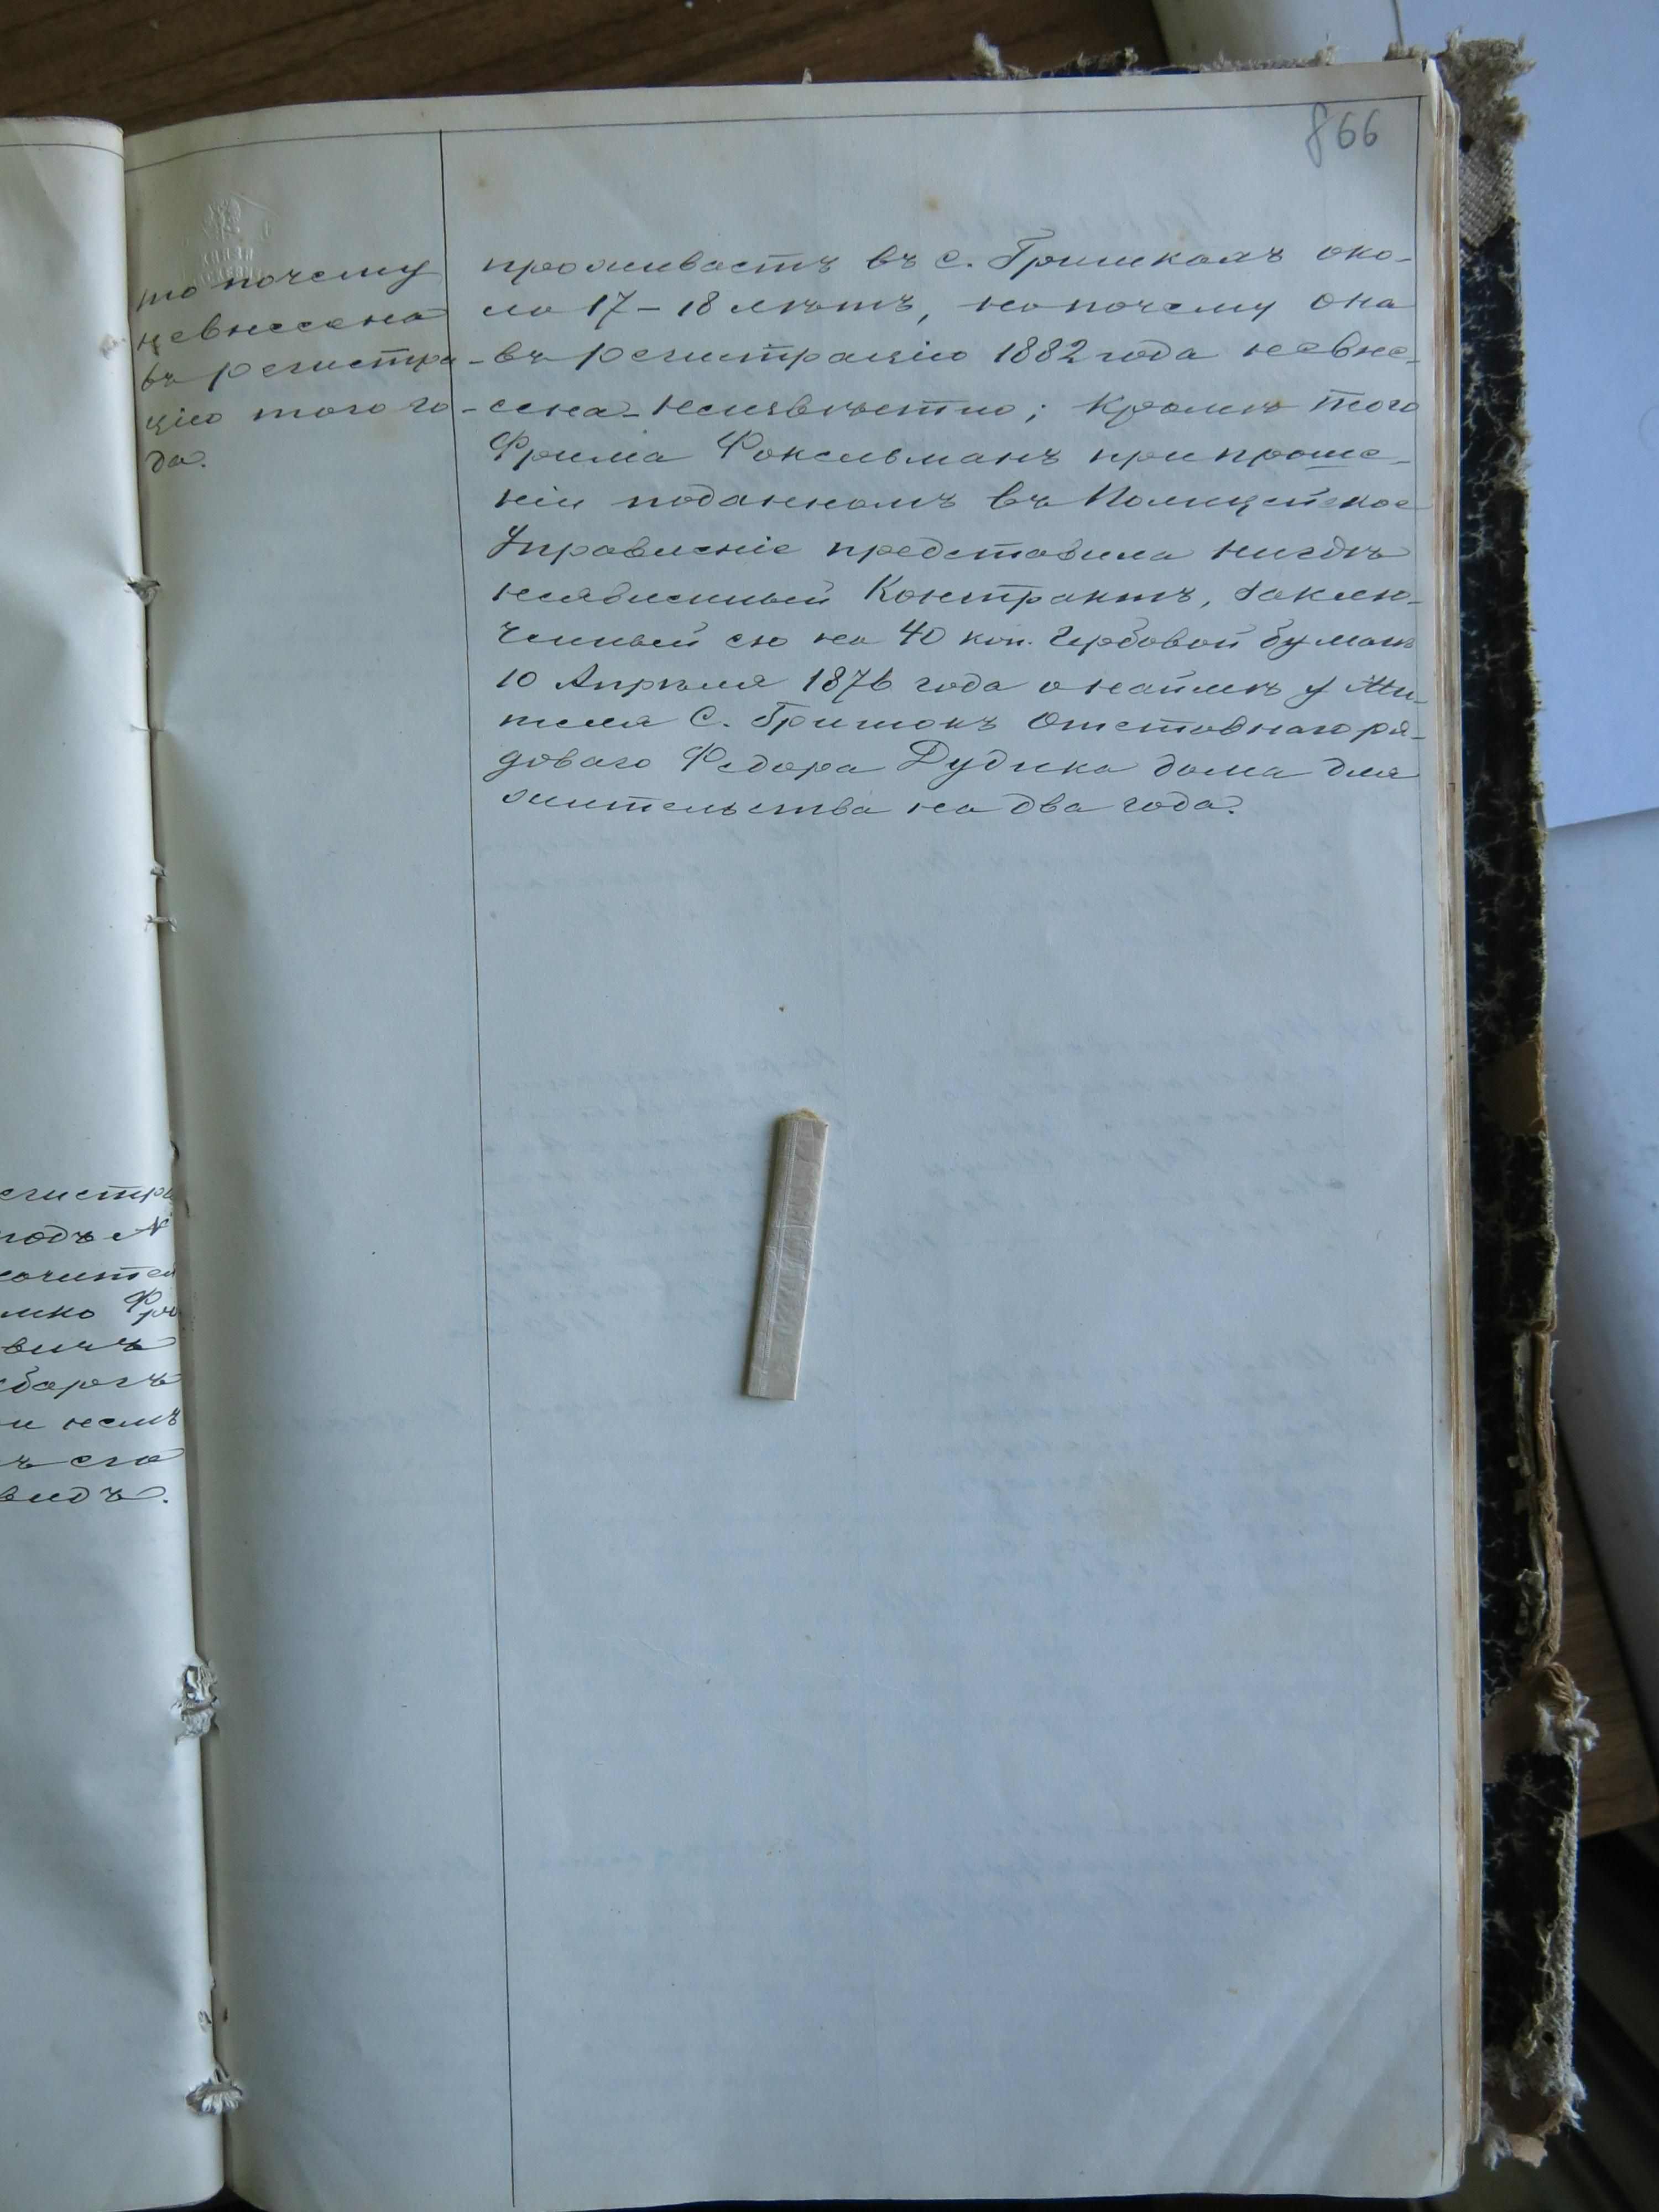 866
то почему
невнесена
въ регистра-
цію того го-
да.
проживаетъ въ с. Гришкахъ око-
ло 17-18 лѣтъ, но почему она
въ регистрацію 1882 года невне-
сена- неизвѣстно; кромѣ того
Фрима Фоксельманъ при проше-
ніи поданномъ въ Полицейское
Управленіе представила нигдѣ
неявленный Контрактъ, заклю-
ченный ею на 40 коп. Гербовой бумагѣ
10 Апрѣля 1876 года о наймѣ у жи-
теля С. Гришокъ Отставнаго ря-
доваго Федора Дудика дома для
жительства на два года.
егистра
подъ №
вичъ
бергъ
и немъ
ъ его
видъ.